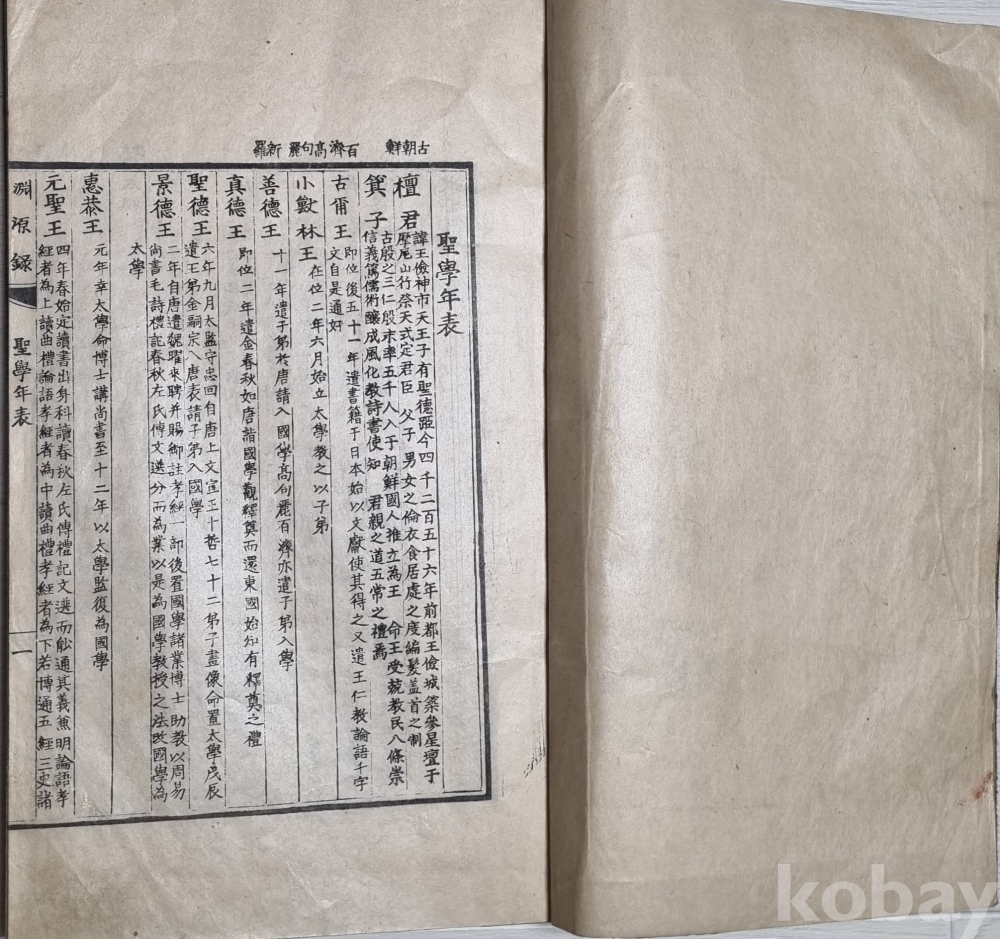 古朝鮮
百濟高句麗
新羅
聖學年表
檀君
諱王儉神市天王子有聖德距今四千二百五十六年前都王儉城築參星壇于
摩尼山行祭天式定君臣 父子 男女之倫衣食居處之度編髮盖首之制
箕子
古殷之三仁殷末率五千人入于朝鮮國人推立為王 命王受兢教民八條崇
信義篤儒術釀成風化教詩書使知 君親之道五常之禮焉
古甭王
即位後五十一年遣書籍于日本始以文獻使其得之又遣王仁教論語千字
文自是通好
小獸林王
在位二年六月始立太學教之以子弟
善德王
十一年遣子弟於唐請入國學高句麗百濟亦遣子弟入學
真德王
即位二年遣金春秋如唐詣國學觀釋奠而還東國始知有釋奠之禮
聖德王
六年九月太監守忠回自唐上文宣王十哲七十二弟子畫像命置太學戊辰
遣王弟金嗣宗入唐表請子弟入國學
景德王
二年自唐遣魏曜來聘并賜御註孝經一部後置國學諸業博士助教以周易
尚書毛詩禮記春秋左氏傳文選分而為業以是為國學教授之法改國學為
太學
惠恭王
元年幸太學命博士講尚書至十二年以太學監復為國學
元聖王
四年春始定讀書出身科讀春秋左氏傳禮記文選而能通其義兼明論語孝
經者為上讀曲禮論語孝經者為中讀曲禮孝經者為下若博通五經三史諸
淵源錄
聖學年表
一
kobay